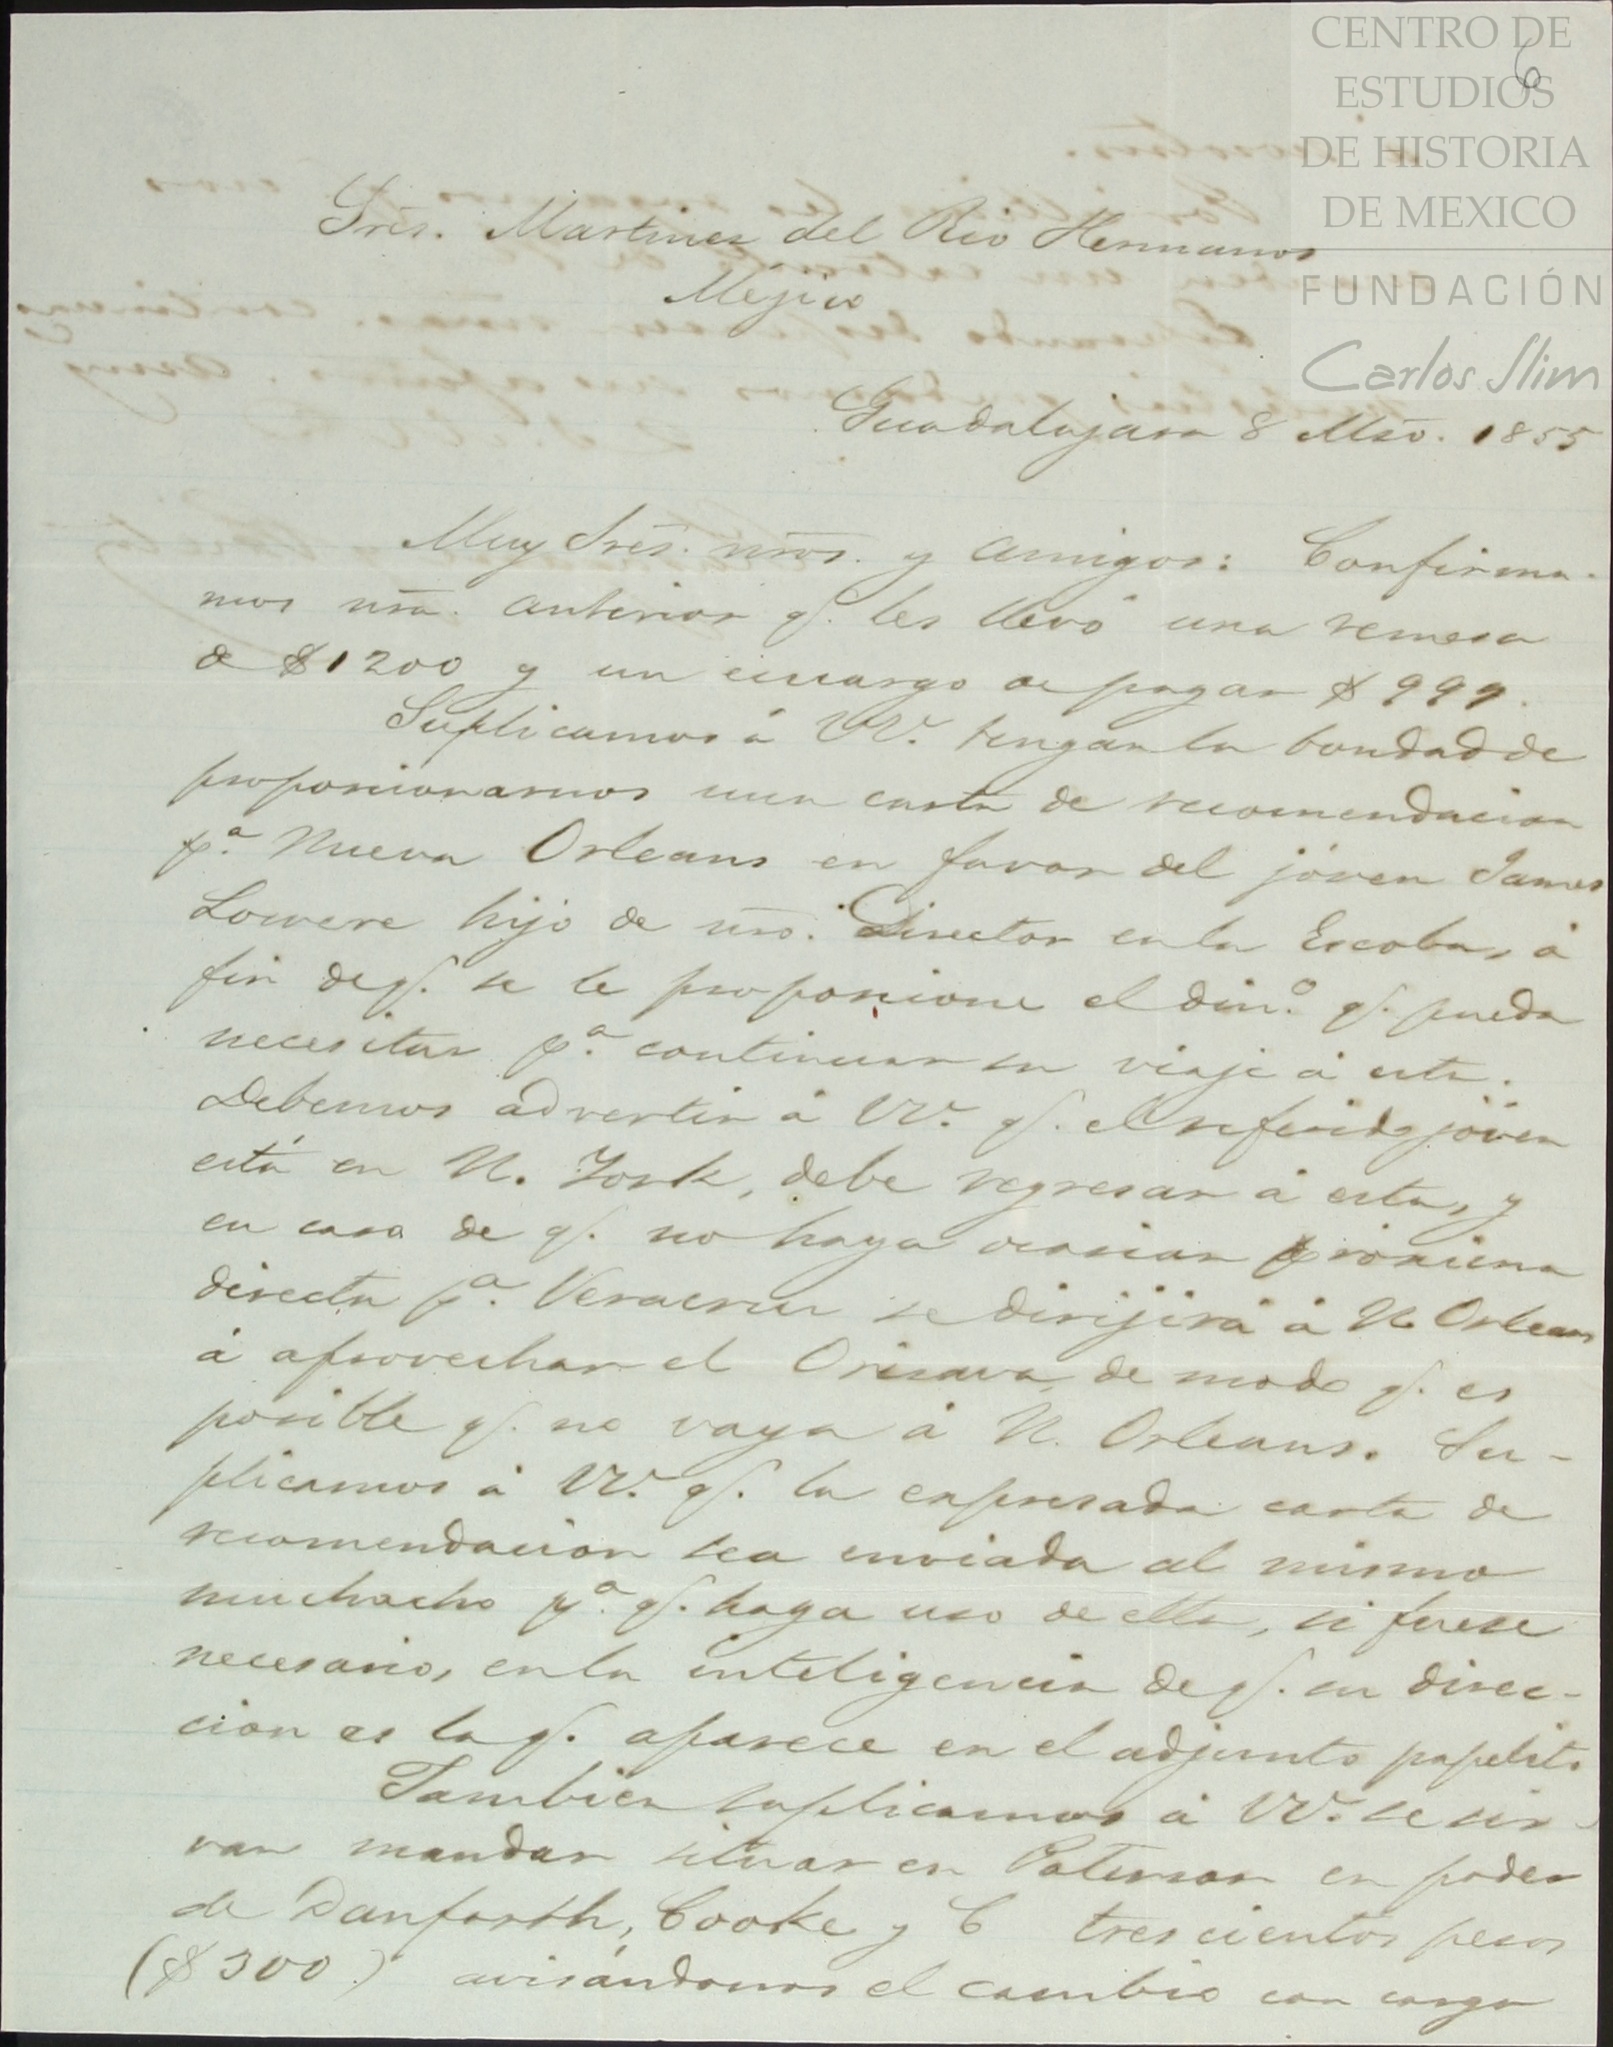 CENTRO DE
ESTUDIOS
DE HISTORIA
DE MEXICO
FUNDACIÓN
Carlos Slim
6
Sres. Martinez del Rio Hermanos
Mejico
Guadalajara 8 Mzo. 1855
Muy Sres. nros. y amigos: Confirma-
mos nra. anterior q. les llevó una remesa
de $1200 y un encargo de pagar $999.
Suplicamos á VV. tengan la bondad de
proporcionarnos una carta de recomendacion
pa. Nueva Orleans en favor del jóven James
Lowere hijo de nro. Director en la Escoba, á
fin de q. se le proporcione el dino. q. pueda
necesitar pa. continuar su viaje á esta.
Debemos advertir á VV. q. el referido jóven
está en N. York, debe regresar á esta, y
en caso de q. no haya ocasion proxima
directa pa. Veracruz se dirijirá á N. Orleans
á aprovechar el Orisava, de modo q. es
posible q. no vaya á N. Orleans. Su-
plicamos á VV. q. la espresada carta de
recomendacion sea enviada al mismo
muchacho pa. q. haga uso de ella, si fuese
necesario, en la inteligencia de q. su direc-
cion es la q. aparece en el adjunto papelito
Tambien suplicamos á VV. se sir-
van mandar situar en Paterson en poder
de Danforth, Cooke y C trescientos pesos
($300) avisándonos el cambio con cargo